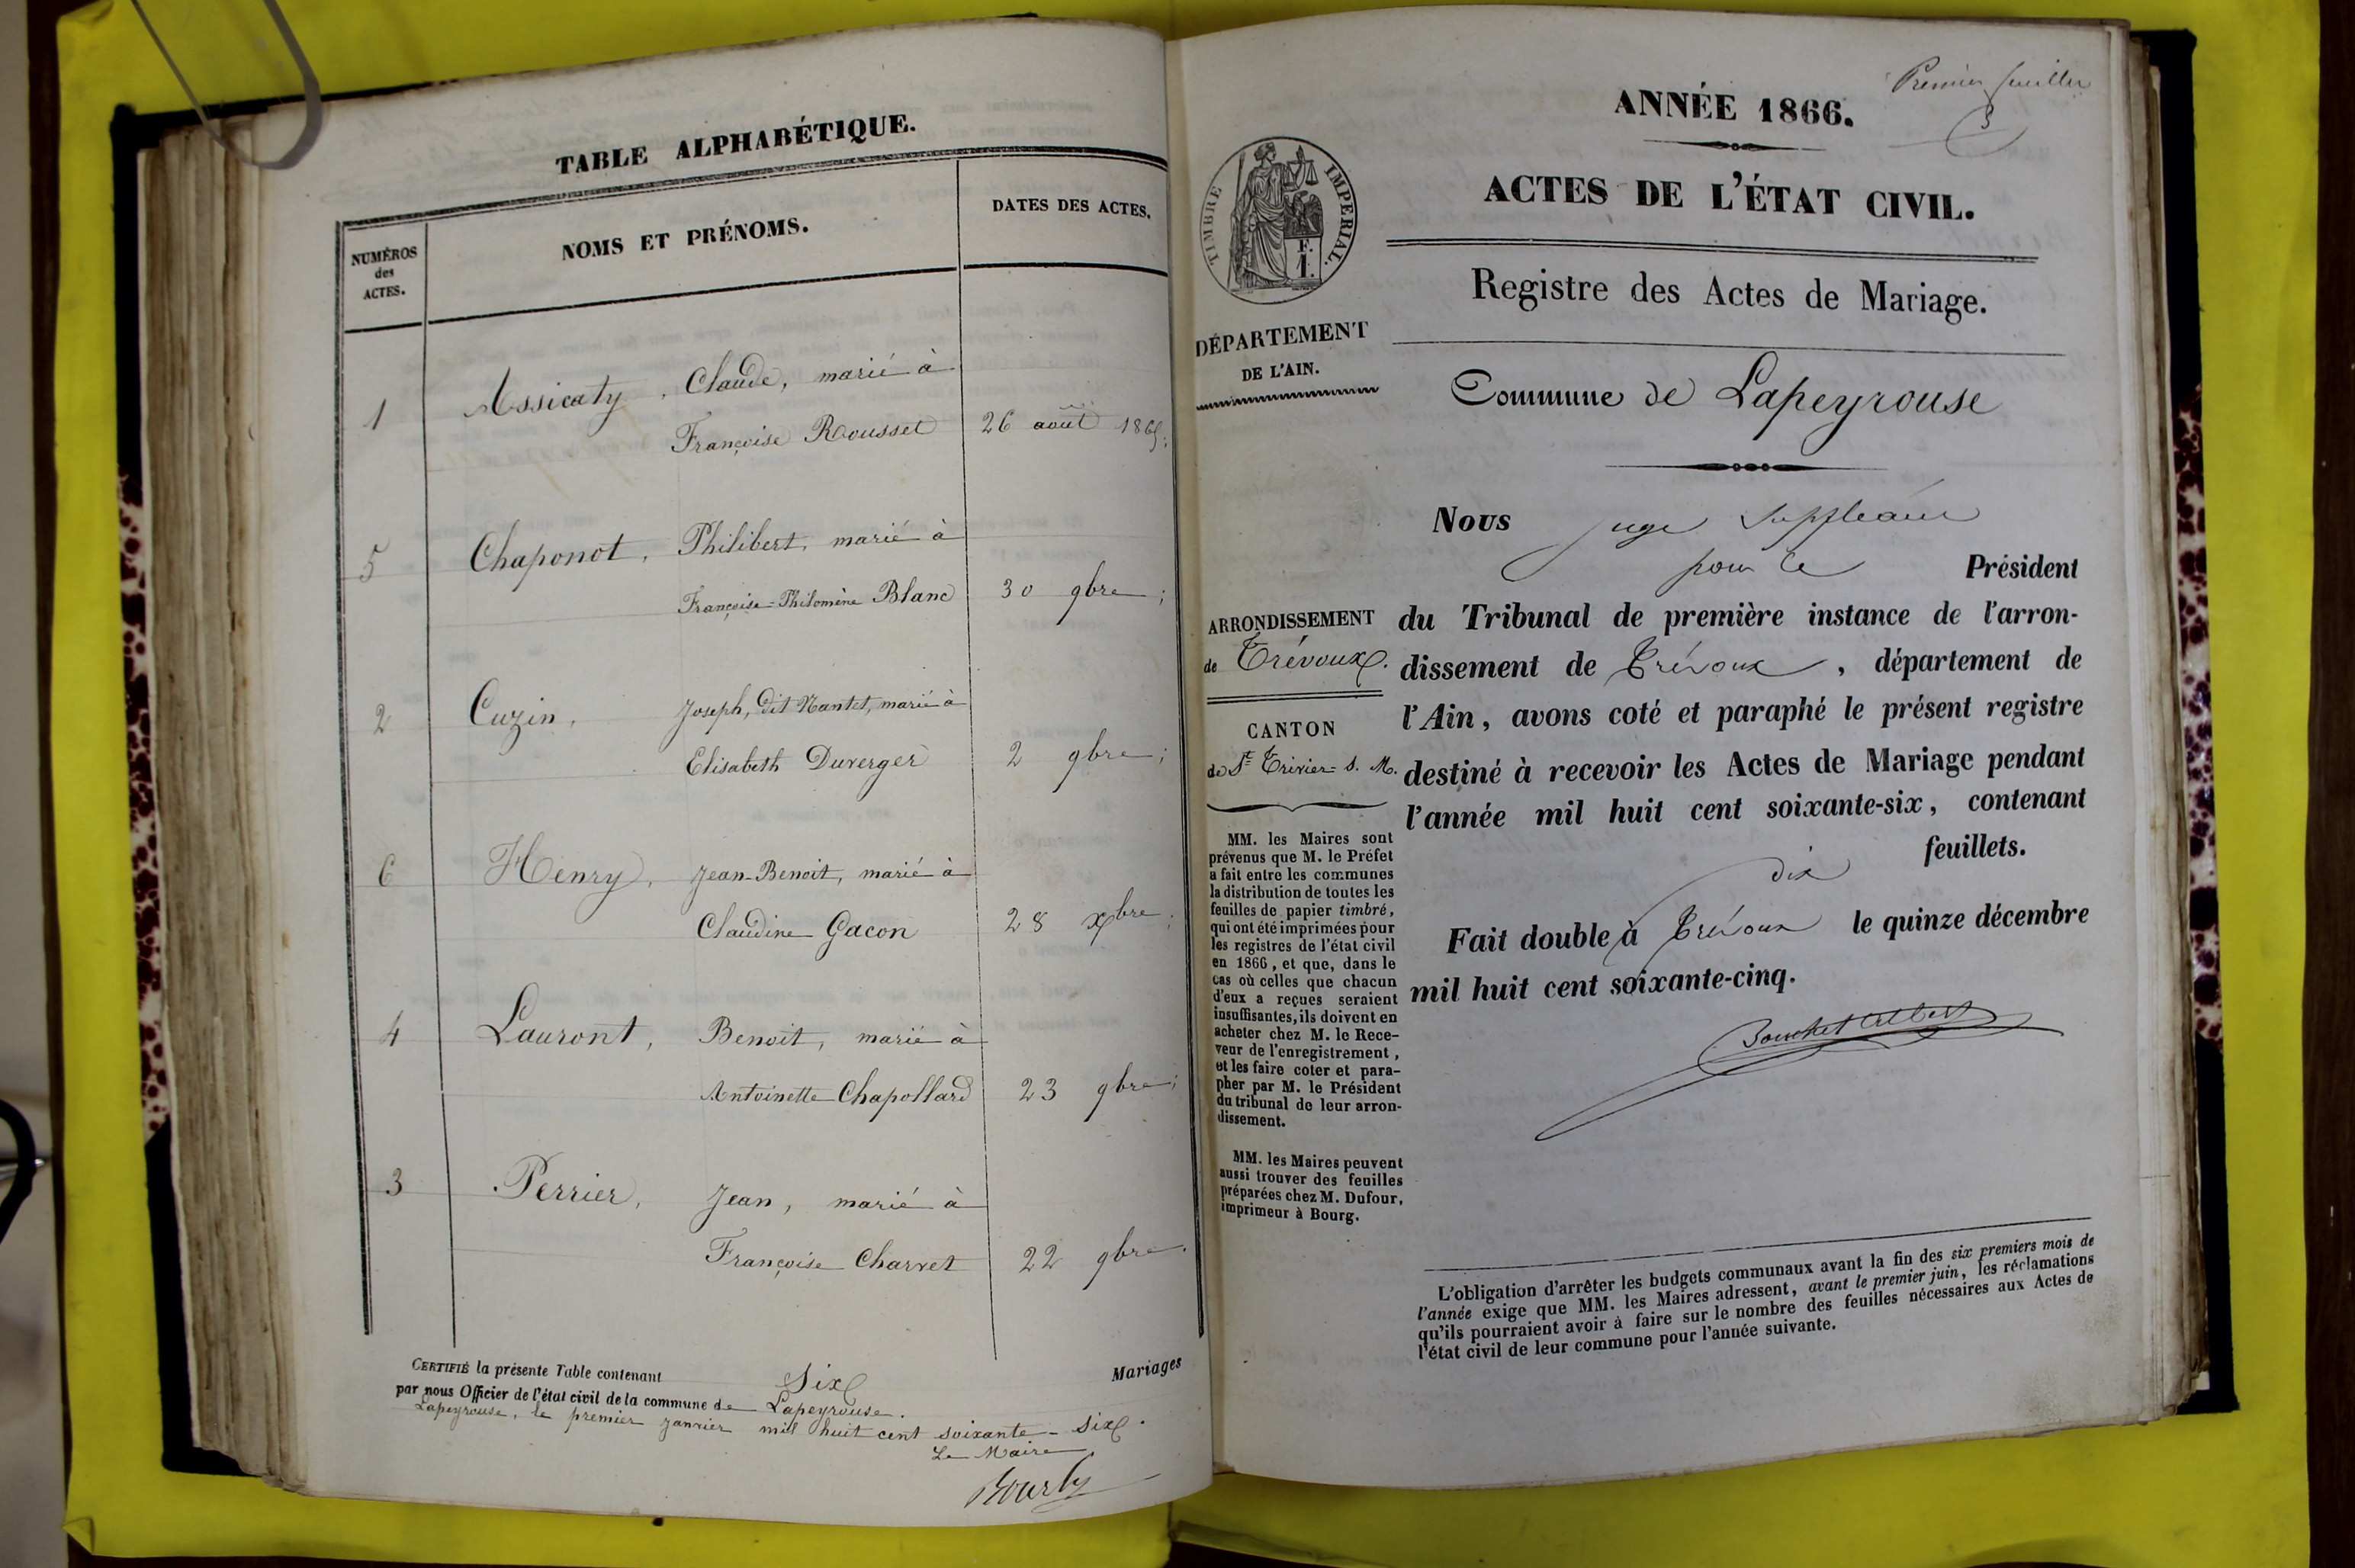 TABLE ALPHABÉTIQUE.
NUMÉROS
des
ACTES.
NOMS ET PRÉNOMS.
DATES DES ACTES.
1 Assicaty, Claude, marié à
Françoise Rousset 26 août 1865;
5 Chaponot, Philibert, marié à
Françoise-Philomène Blanc 30 9bre;
2 Cuzin, Joseph, dit Nantet, marié à
Elisabeth Duverger 2 9bre;
6 Henry, Jean-Benoit, marié à
Claudine Gacon 28 xbre;
4 Lauront, Benoit, marié à
Antoinette Chapollard 23 9bre;
3 Perrier, Jean, marié à
Françoise Charvet 22 9bre.
CERTIFIÉ la présente Table contenant Six Mariages
par nous Officier de l'état civil de la commune de Lapeyrouse.
Lapeyrouse, le premier janvier mil huit cent soixante-six.
Le Maire,
Premier feuillet
ANNÉE 1866.
ACTES DE L'ÉTAT CIVIL.
TIMBRE IMPÉRIAL.
F.
1.
Registre des Actes de Mariage.
DÉPARTEMENT
DE L'AIN.
Commune de Lapeyrouse
ARRONDISSEMENT
de Trévoux.
CANTON
de St Trivier-s. M.
MM. les Maires sont
prévenus que M. le Préfet
a fait entre les communes
la distribution de toutes les
feuilles de papier timbré,
qui ont été imprimées pour
les registres de l'état civil
en 1866, et que, dans le
cas où celles que chacun
d'eux a reçues seraient
insuffisantes, ils doivent en
acheter chez M. le Rece-
veur de l'enregistrement,
et les faire coter et para-
pher par M. le Président
du tribunal de leur arron-
dissement.
MM. les Maires peuvent
aussi trouver des feuilles
préparées chez M. Dufour,
imprimeur à Bourg.
Nous juge suppléant
pour le Président
du Tribunal de première instance de l'arron-
dissement de Trévoux, département de
l'Ain, avons coté et paraphé le présent registre
destiné à recevoir les Actes de Mariage pendant
l'année mil huit cent soixante-six, contenant
dix feuillets.
Fait double à Trévoux le quinze décembre
mil huit cent soixante-cinq.
L'obligation d'arrêter les budgets communaux avant la fin des six premiers mois de
l'année exige que MM. les Maires adressent, avant le premier juin, les réclamations
qu'ils pourraient avoir à faire sur le nombre des feuilles nécessaires aux Actes de
l'état civil de leur commune pour l'année suivante.